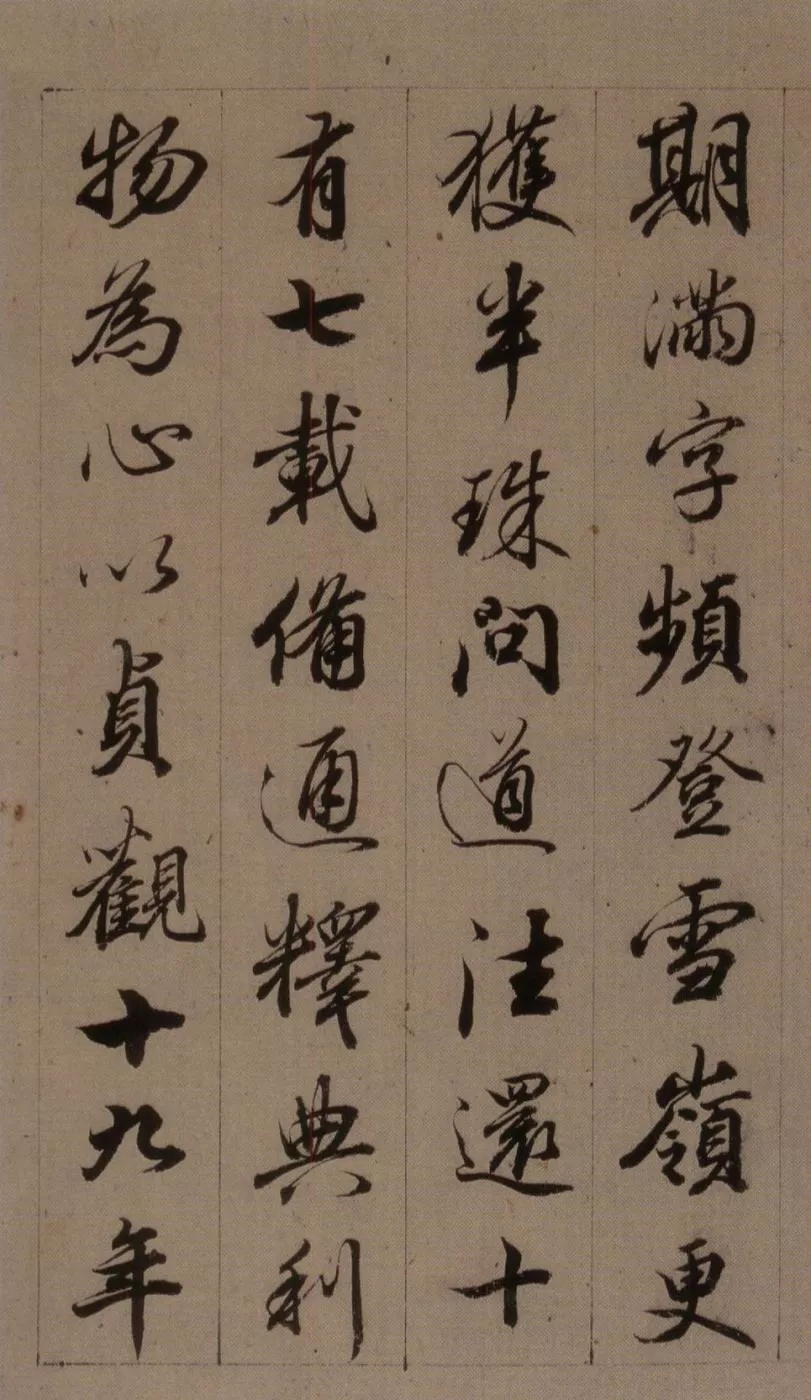 期滿字頻登雪嶺更
獲半珠問道往還十
有七載備通釋典利
物為心以貞觀十九年